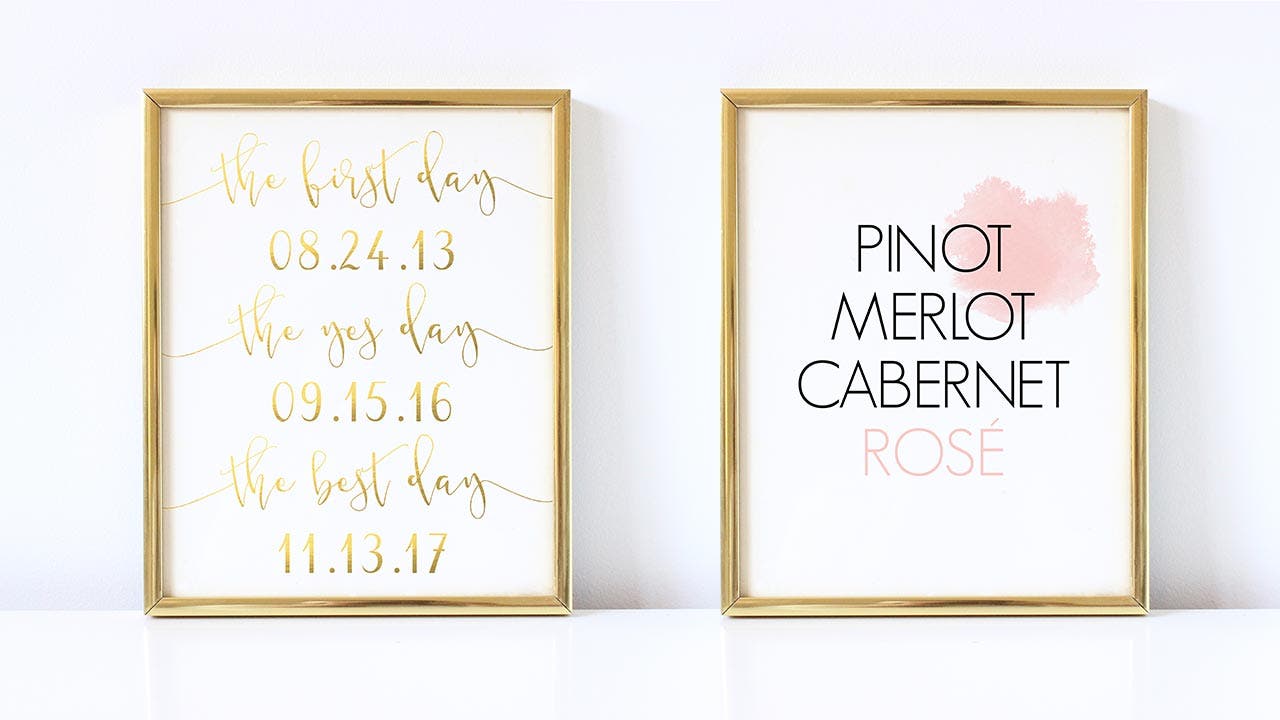 the first day
08.24.13
the yes day
09.15.16
the best day
11.13.17
PINOT
MERLOT
CABERNET
ROSÉ